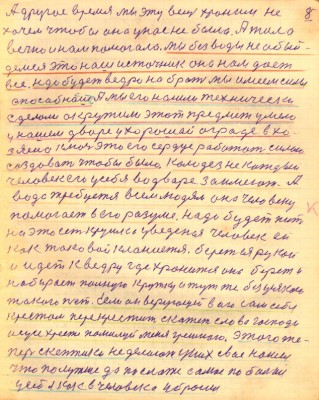 8
А другое время мы эту вещ храним не
хочем чтобы она у нас не была. А тило
велко и нам помогало. Мы без воды не обый-
демся это наш источник оно нам дает
все. Надо будет ведро набрат мы имеем силы
способности А мы его нашли технически
сделом окрутим этот предмет умело
у нашем дворе у хорошай ограде в хо-
зяено ключ. Это его сердце работат силы
создоват чтобы было. Колодез не каждый
человек его у себя водваре заимеют. А
вода требуется всем людям она человеку
помогает в его разуме. Надо будет пит
на это ест кружка уведеная человек ей
как таковой кланеется. берет яя рукой
и идет к ведру где хронится она берет и
набирает полную кружку и тут же без усякого
такого пет. Если он верующий в ево сам себя
крестом перекрестит скажет слово господи
исусе христе помилуй меня грешного. Этого те-
пер скептики не делают у них свое нашей
что получше да послаже самое по больши
у себя как в человека и бросит